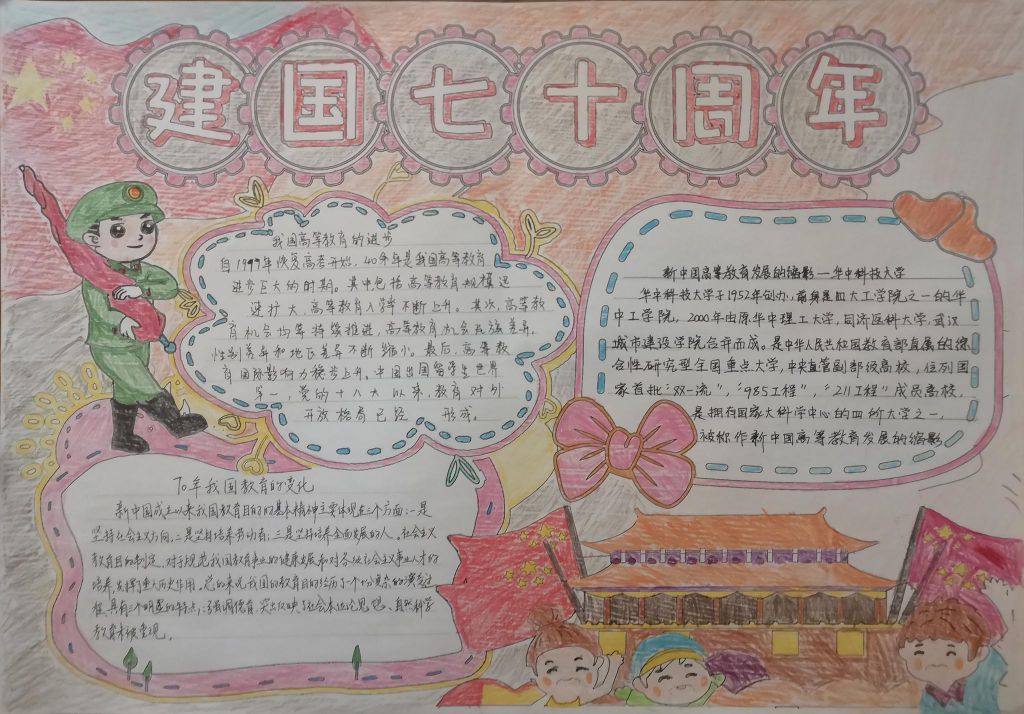 建国七十周年
我国高等教育的进步
自1977年恢复高考开始，40余年是我国高等教育
进步巨大的时期。其中包括高等教育规模迅
速扩大，高等教育入学率不断上升。其次，高等教
育机会均等持续推进，高等教育机会民族差异，
性别差异和地区差异不断缩小。最后，高等教
育国际影响力稳步上升，中国出国留学生世界
第一，党的十八大以来，教育对外
开放格局已经形成。
新中国高等教育发展的缩影—华中科技大学
华中科技大学于1952年创办，前身是四大工学院之一的华
中工学院，2000年由原华中理工大学，同济医科大学，武汉
城市建设学院合并而成。是中华人民共和国教育部直属的综
合性研究型全国重点大学，中央直管副部级高校，位列国
家首批“双一流”，“985工程”，“211工程”成员高校，
是拥有国家大科学中心的四所大学之一，
被称作新中国高等教育发展的缩影
70年我国教育的变化
新中国成立以来我国教育目的的基本精神主要体现在三个方面：一是
坚持社会主义方向，二是坚持培养劳动者；三是坚持培养全面发展的人。社会主义
教育目的制定，对于规范我国教育事业的健康发展和对各级社会主义事业人才的
培养，发挥了重大历史作用。总的来说我国的教育目的经历了个十分复杂的演变过
程，具有个明显的特点，过强调德育，突出反映了社会本位论思想、自然科学
教育未被重视。